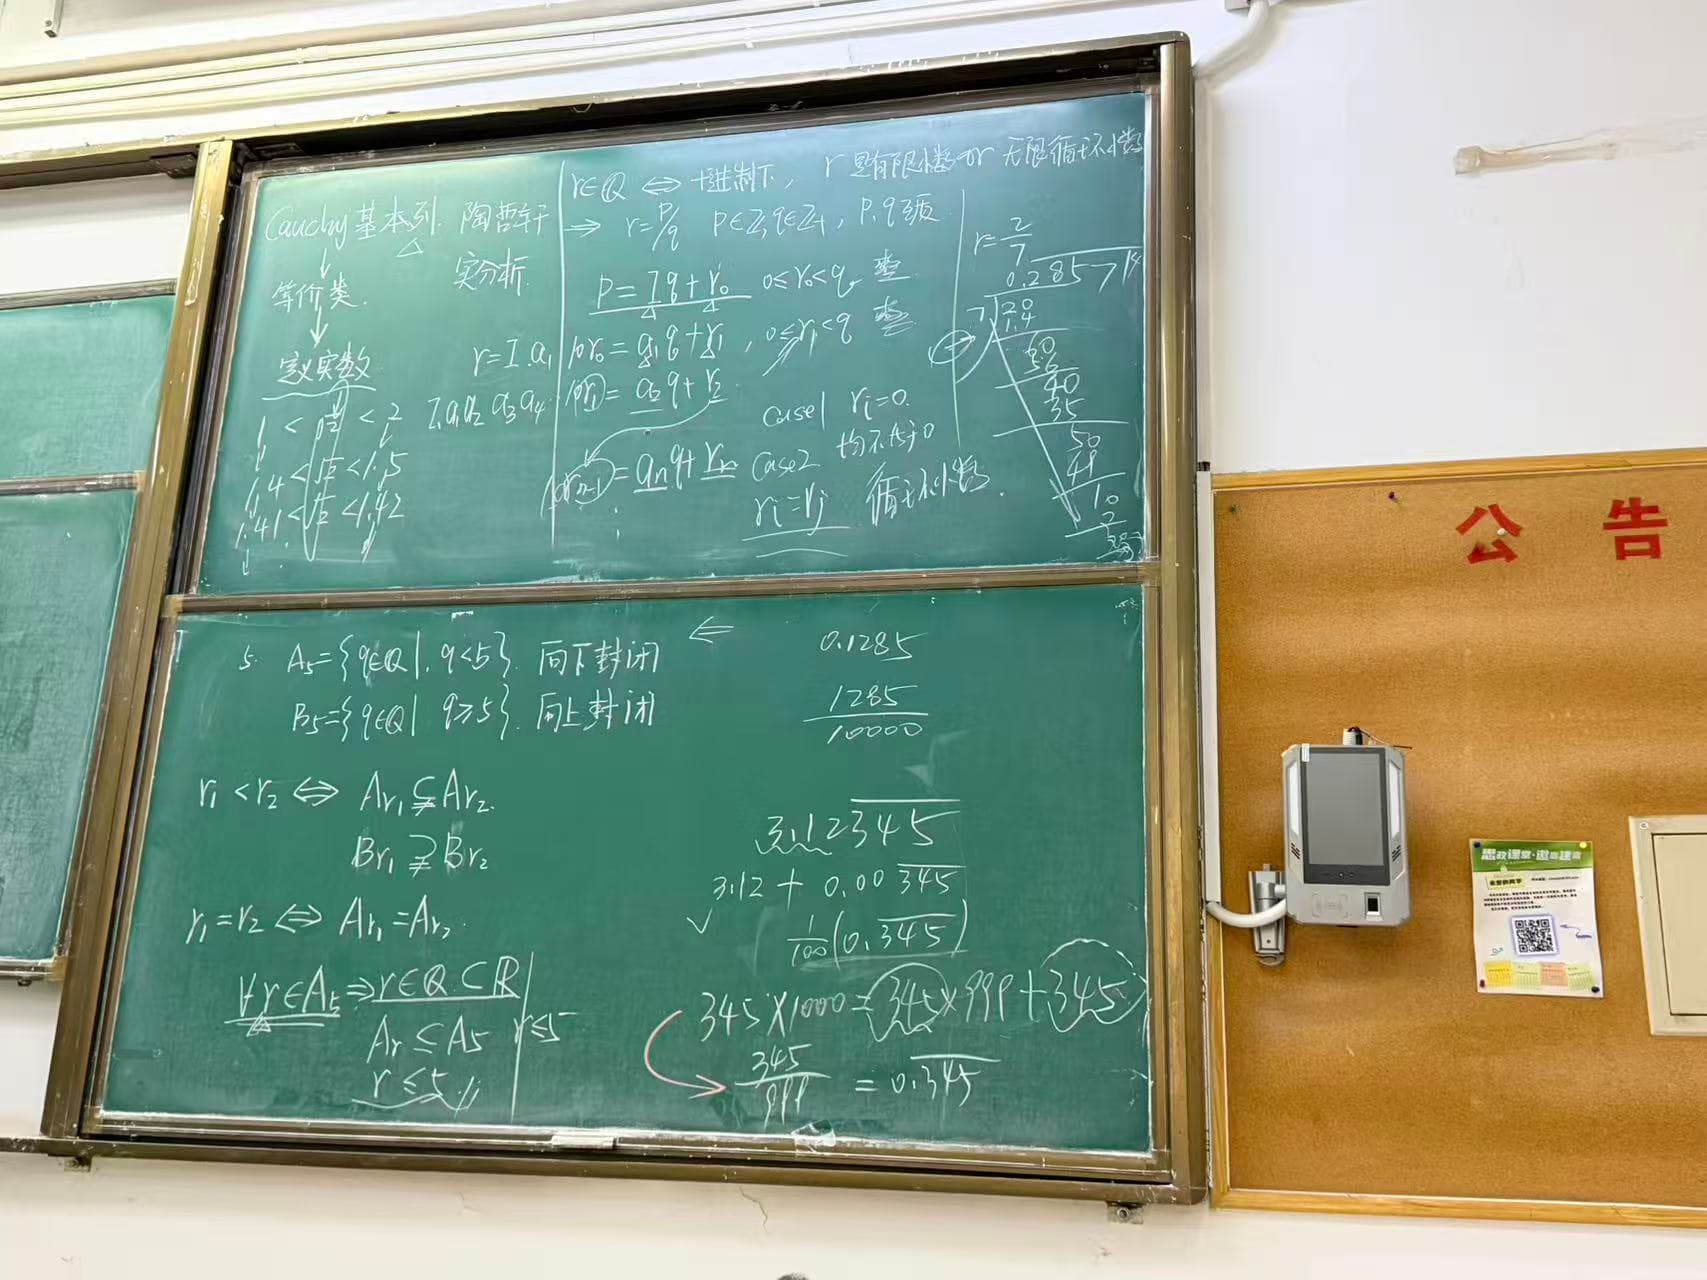 Cauchy基本列. 陶哲轩
实分析.
↓
等价类.
↓
定义实数
1 < √2 < 2
1.4 < √2 < 1.5
1.41 < √2 < 1.42
r = I.a₁
I.a₁a₂a₃a₄
r∈Q ⇔ 十进制下, r 是有限小数 or 无限循环小数
⇒ r = p/q p∈Z, q∈Z₊, p.q 互质
p = Iq + r₀ 0≤r₀<q
10r₀ = a₁q + r₁, 0≤r₁<q
10r₁ = a₂q + r₂
10rₙ₋₁ = aₙq + rₙ
⋮
case1 rᵢ=0.
case2 均不为0
rᵢ=rⱼ 循环小数.
r = 2/7
0.285714
7 20
14
60
56
40
35
50
49
10
7
30
5. A₅={q∈Q|. q<5}. 向下封闭
B₅={q∈Q| q≥5}. 向上封闭
r₁<r₂ ⇔ Ar₁⊊Ar₂.
Br₁⊋Br₂
r₁=r₂ ⇔ Ar₁=Ar₂.
∀r∈A₅ ⇒ r∈Q⊂R
Ar⊆A₅ r≤5
r≤5
⇐ 0.1285
1285/10000
3.12345
3.12 + 0.00345
1/100(0.345)
345×1000=345×999+345
345/999 = 0.345
公 告
思政课堂·邀您建言